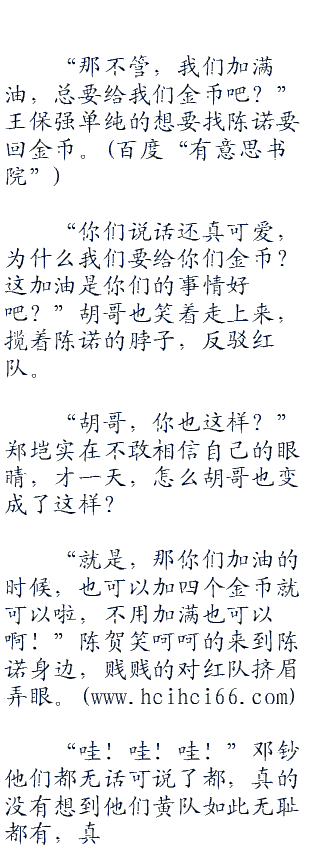 “那不管，我们加满
油，总要给我们金币吧？”
王保强单纯的想要找陈诺要
回金币。(百度“有意思书
院”)
“你们说话还真可爱，
为什么我们要给你们金币？
这加油是你们的事情好
吧？”胡哥也笑着走上来，
揽着陈诺的脖子，反驳红
队。
“胡哥，你也这样？”
郑垲实在不敢相信自己的眼
睛，才一天，怎么胡哥也变
成了这样？
“就是，那你们加油的
时候，也可以加四个金币就
可以啦，不用加满也可以
啊！”陈贺笑呵呵的来到陈
诺身边，贱贱的对红队挤眉
弄眼。(www.hcihci66.com)
“哇！哇！哇！”邓钞
他们都无话可说了都，真的
没有想到他们黄队如此无耻
都有，真